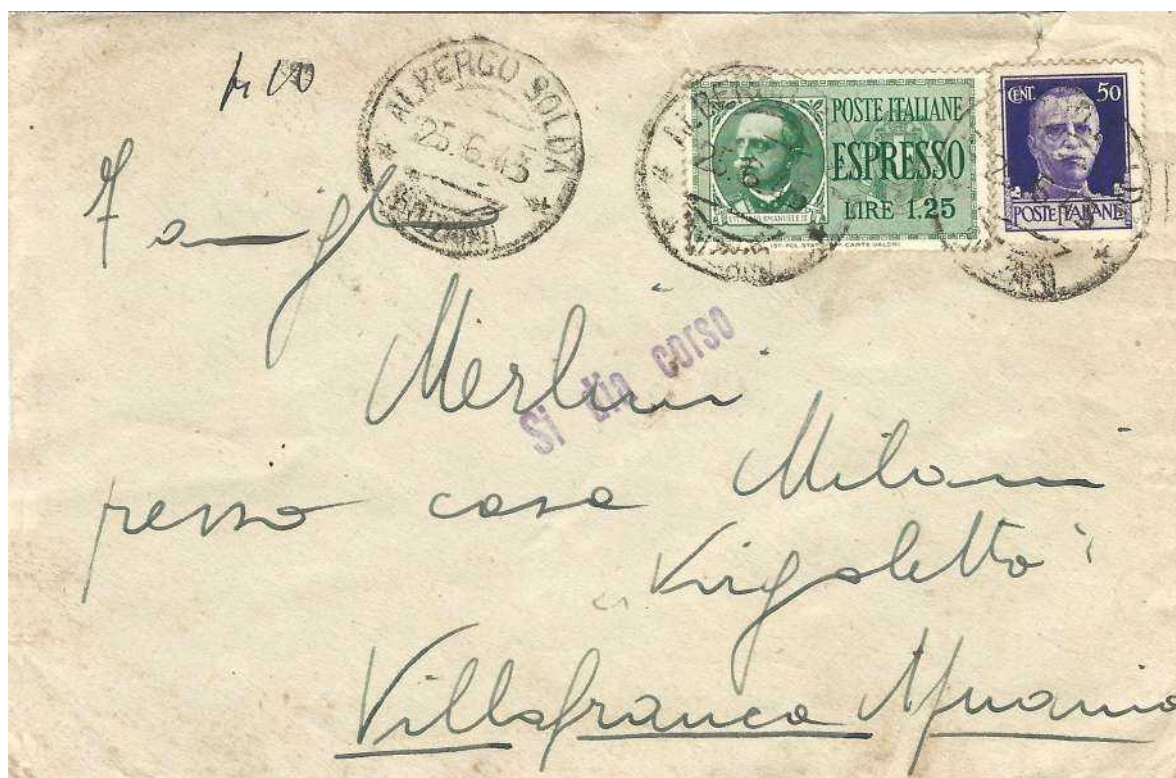 ALBERGO SOLDA
25.6.43
(BOLZANO)
POSTE ITALIANE
ESPRESSO
LIRE 1.25
VITTORIO EMANUELE III
IST. POL. STATO OFF. CARTE VALORI
CENT. 50
POSTE ITALIANE
Famiglia
Merlini
Si dia corso
presso casa Milani
Virgoletta
Villafranca